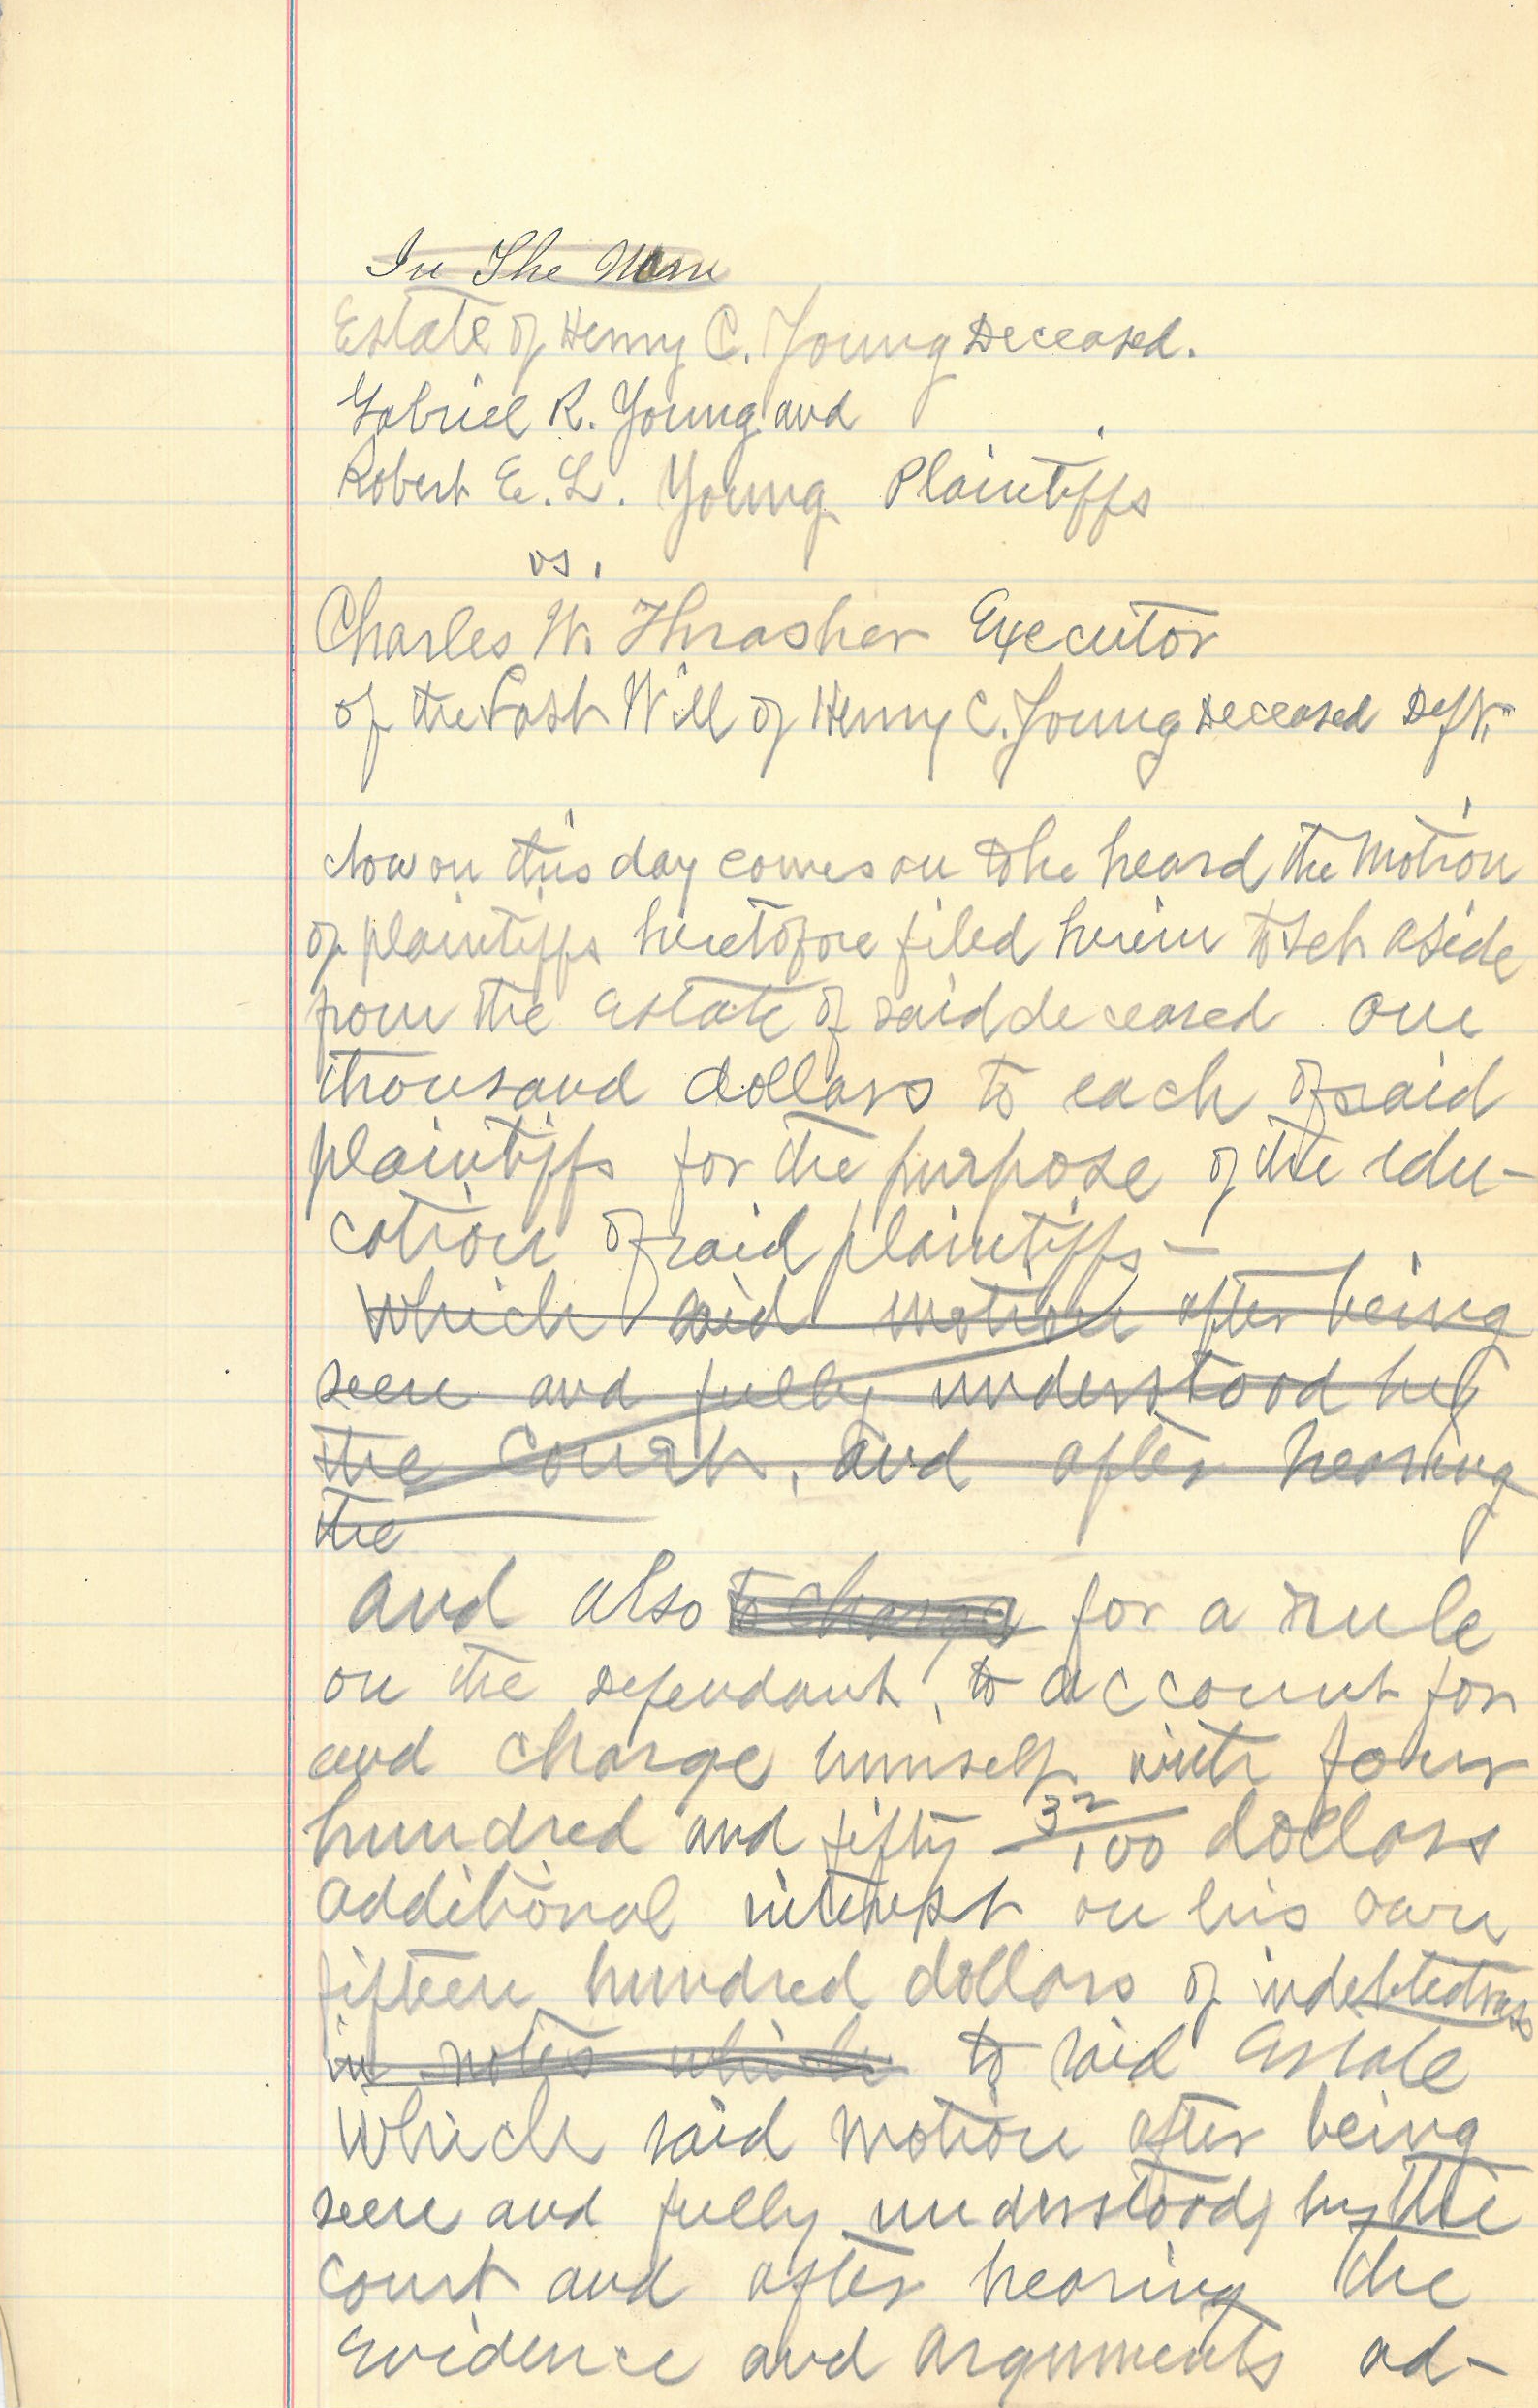 In The
Estate of Henry C. Young Deceased.
Gabriel R. Young and
Robert E. L. Young Plaintiffs
vs.
Charles W. Thrasher Executor
of the Last Will of Henry C. Young Deceased Deft.
Now on this day comes on to be heard the Motion
of plaintiffs heretofore filed herein to set aside
from the Estate of said deceased one
thousand dollars to each of said
plaintiffs for the purpose of the edu-
cation of said plaintiffs —
Which said motion after being
seen and fully understood by
the Court, and after hearing
the
and also to charge for a rule
on the Defendant, to account for
and charge himself with four
hundred and fifty 32/100 dollars
additional interest on his own
fifteen hundred dollars of indebtedness
in notes which to said Estate
Which said motion after being
seen and fully understood by the
Court and after hearing the
Evidence and arguments ad-